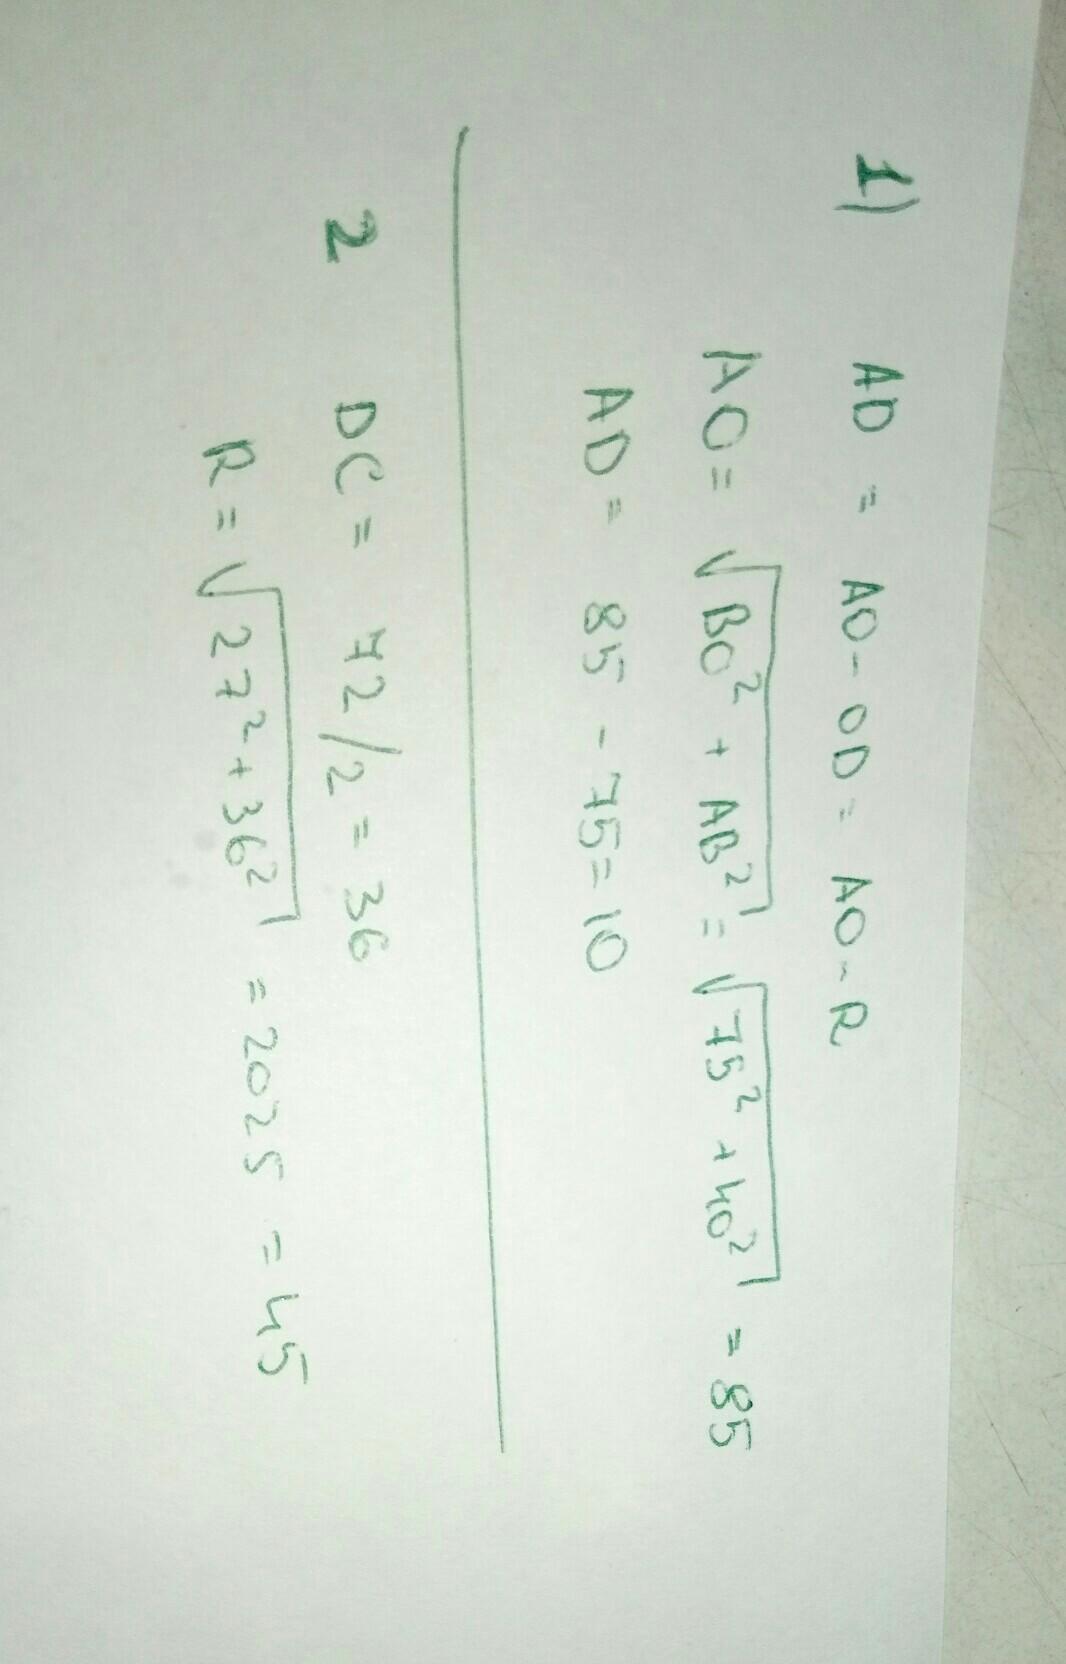 1) AD = AO - OD = AO - R
AO = √BO² + AB² = √75² + 40² = 85
AD = 85 - 75 = 10
2 DC = 72/2 = 36
R = √27² + 36² = 2025 = 45